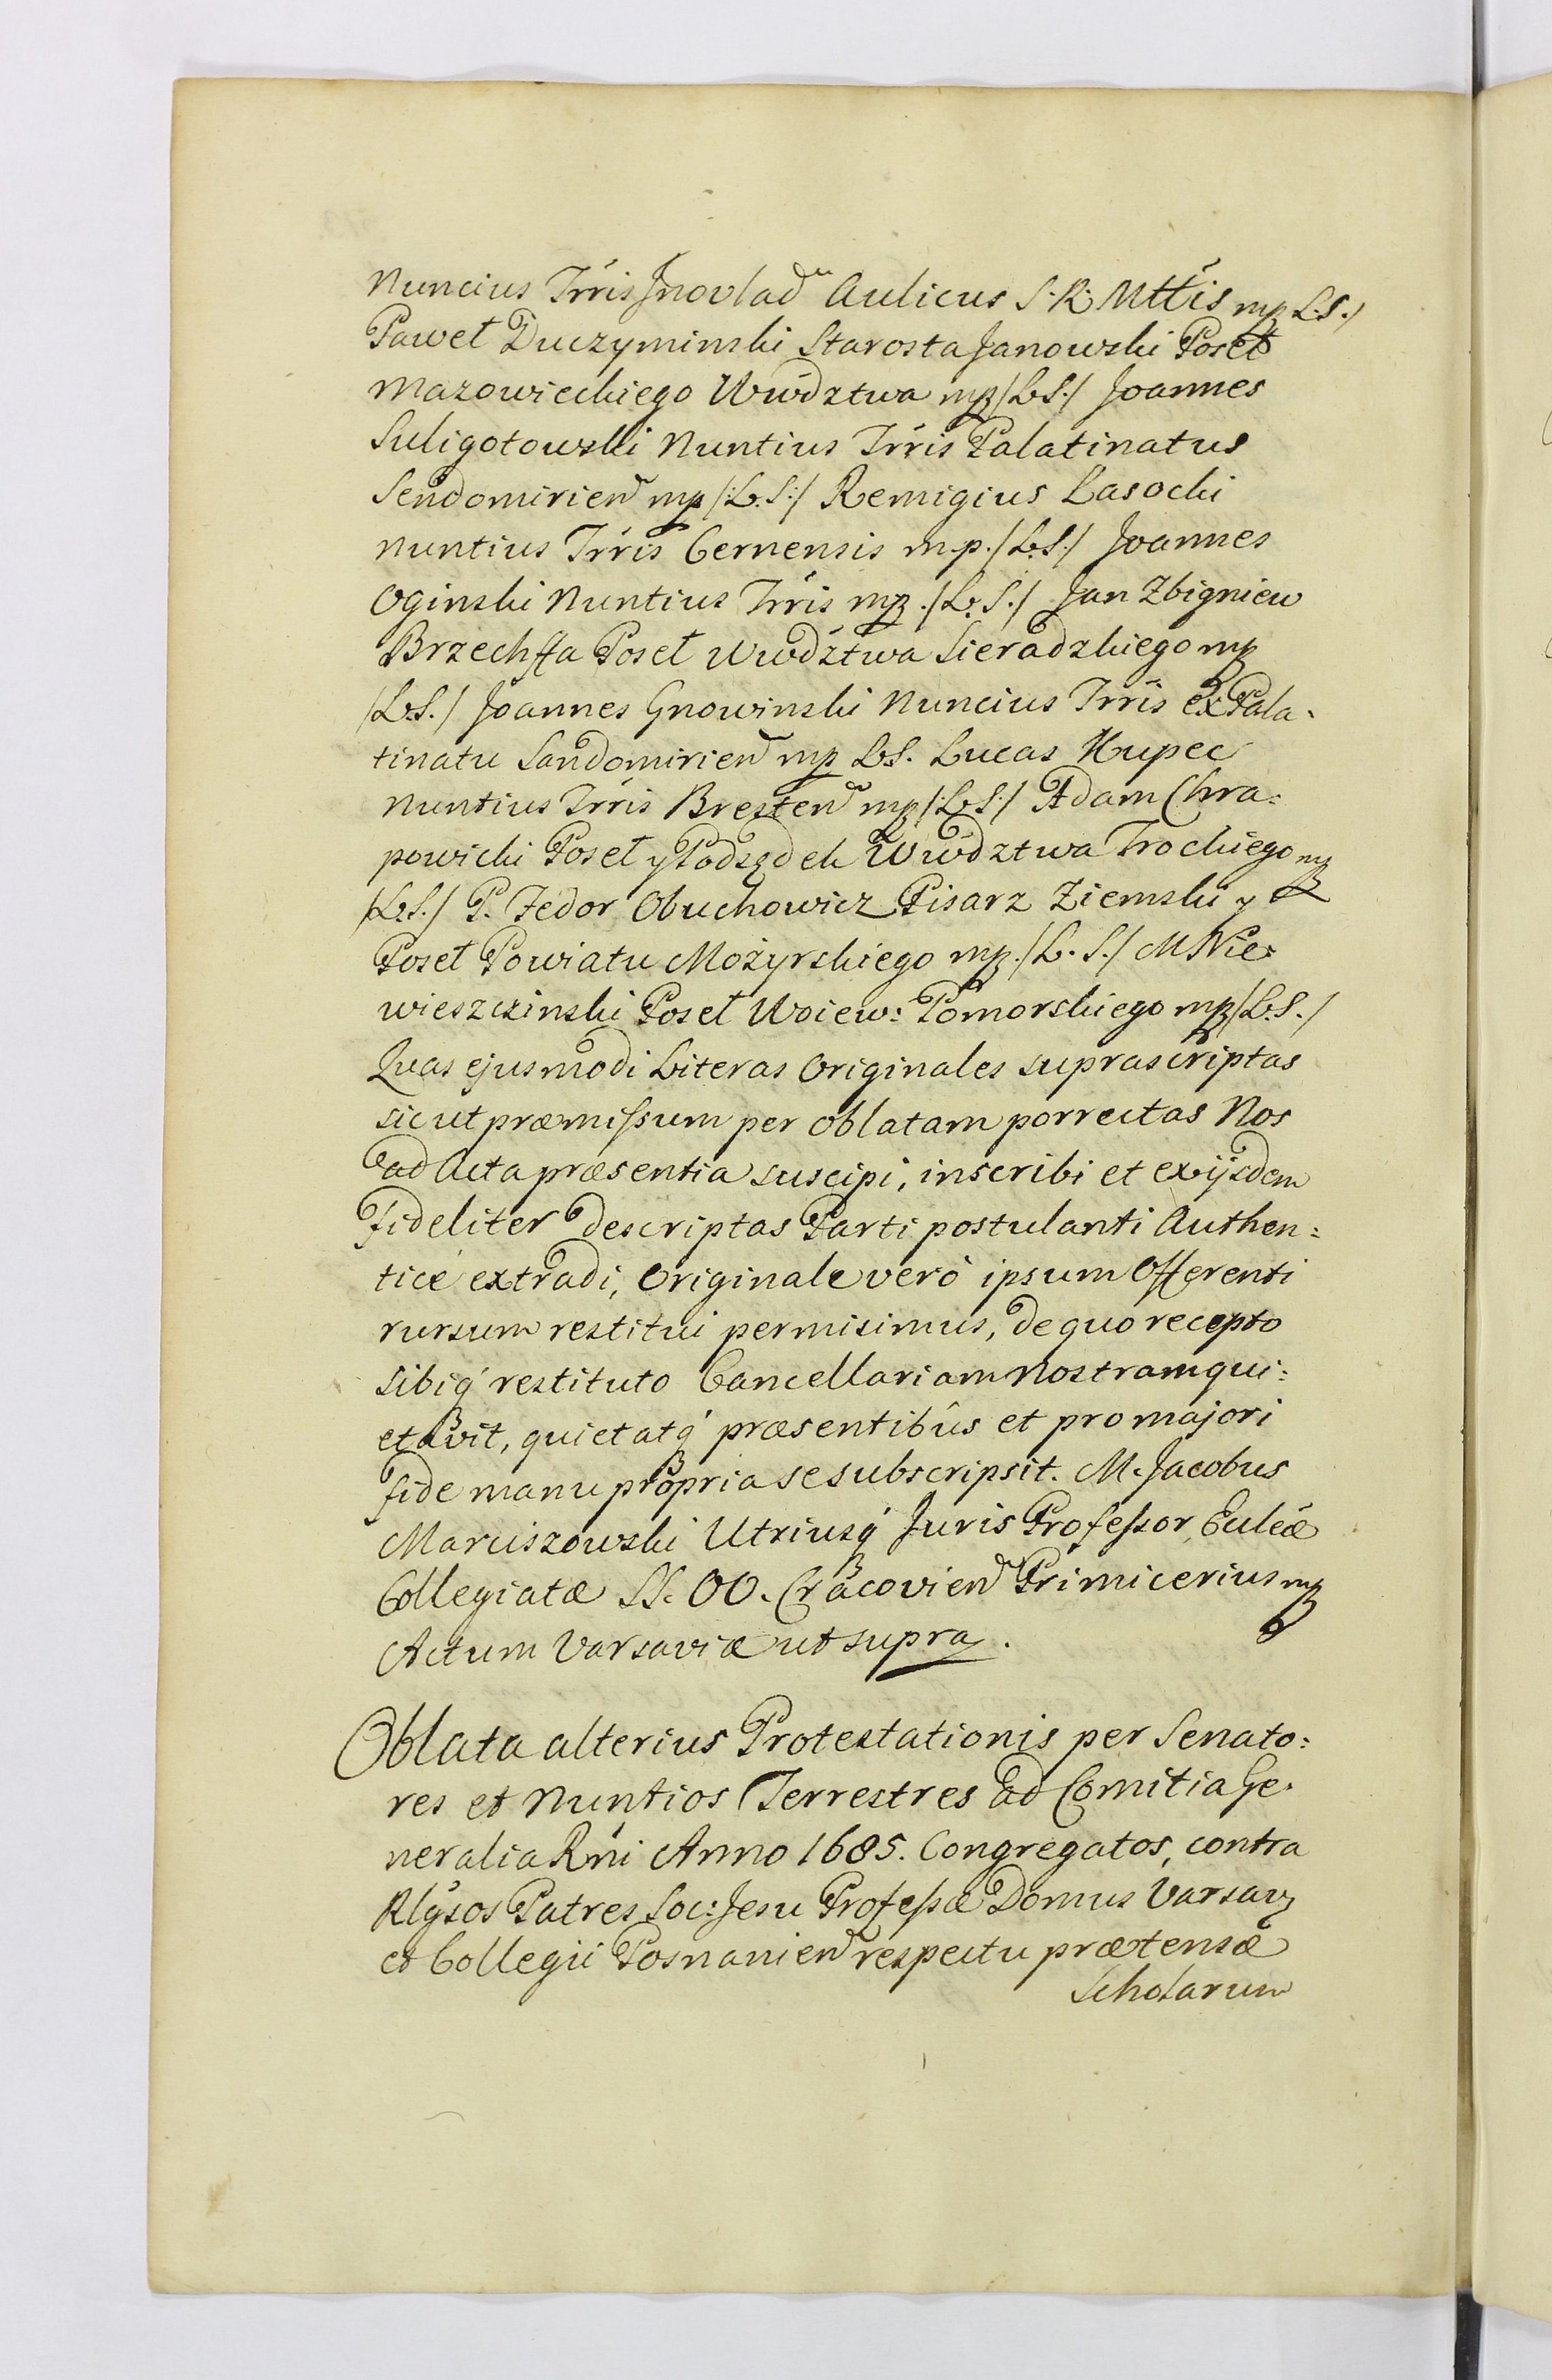 Nuncius Trris Jnovlad͠ Aulicus S. R. Mttis mp L.S./
Paweł Duczyminski Starosta Janowski Poseł
Mazowieckiego Wwdztwa mp /L.S./ Joannes
Suligotowski Nuntius Trris Palatinatus
Sendomirien͠ mp /:L.S:/ Remigius Lasocki
Nuntius Trris Cernensis m.p. /L.S./ Joannes
Oginski Nuntius Trris mp. /L.S./ Jan Zbigniew
Brzechffa Poseł Wwdztwa Sieradzkiego mp
/L.S./ Joannes Gnowinski Nuncius Trris ex Pala-
tinatu Sandomirien͠ mp L.S. Lucas Kupec
Nuntius Trris Bresten͠ mp /:L.S:/ Adam Chra:
powicki Poseł y Podsędek Wwdztwa Trockiego mp
/L.S./ P. Fedor Obuchowicz Pisarz Ziemski y
Poseł Powiatu Możyrskiego mp. /L.S./ M Nie-
wieszczinski Poseł Woiew: Pomorskiego mp /L.S./
Quas ejusmodi Literas Originales suprascriptas
sicut præmissum per oblatam porrectas Nos
ad Acta præsentia suscipi, inscribi et ex ijsdem
fideliter descriptas Parti postulanti Authen:
ticè extradi, Originale verò ipsum Offerenti
rursum restitui permisimus, de quo recepto
sibiq́ restituto Cancellariam Nostram qui:
etavit, quietatq́ præsentibûs et pro majori
fide manu propria se subscripsit. M. Jacobus
Marciszowski Utriusq́ Juris Professor, Eccleæ
Collegiatæ SS. OO. Cracovien͠ Primicerius mp
Actum Varsaviæ ut supra.
Oblata alterius Protestationis per Senato:
res et Nuntios Terrestres ad Comitia Ge-
neralia Rni Anno 1685. Congregatos, contra
Rlgsos Patres Soc: Jesu Professæ Domus Varsav
et Collegii Posnanien͠ respectu prætensæ
Scholarum